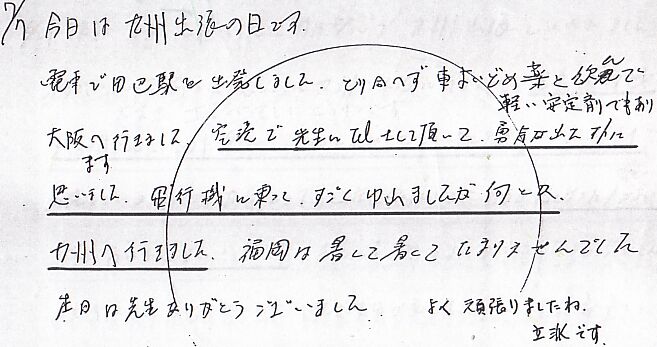 7/7 今日は九州出張の日です.
電車で田辺駅を出発しました. とりあへず車よいどめ薬を飲んで
軽い安定剤でもあり
大阪へ行きました. 空港で先生にTelさして頂いて. 勇気が出た様に
ます
思いました. 飛行機に乗って. すごく中山ましたが何とか.
九州へ行きました. 福岡は暑くて暑くてたまりませんでした
本日は先生ありがとうございました
よく頑張りましたね.
立派です.